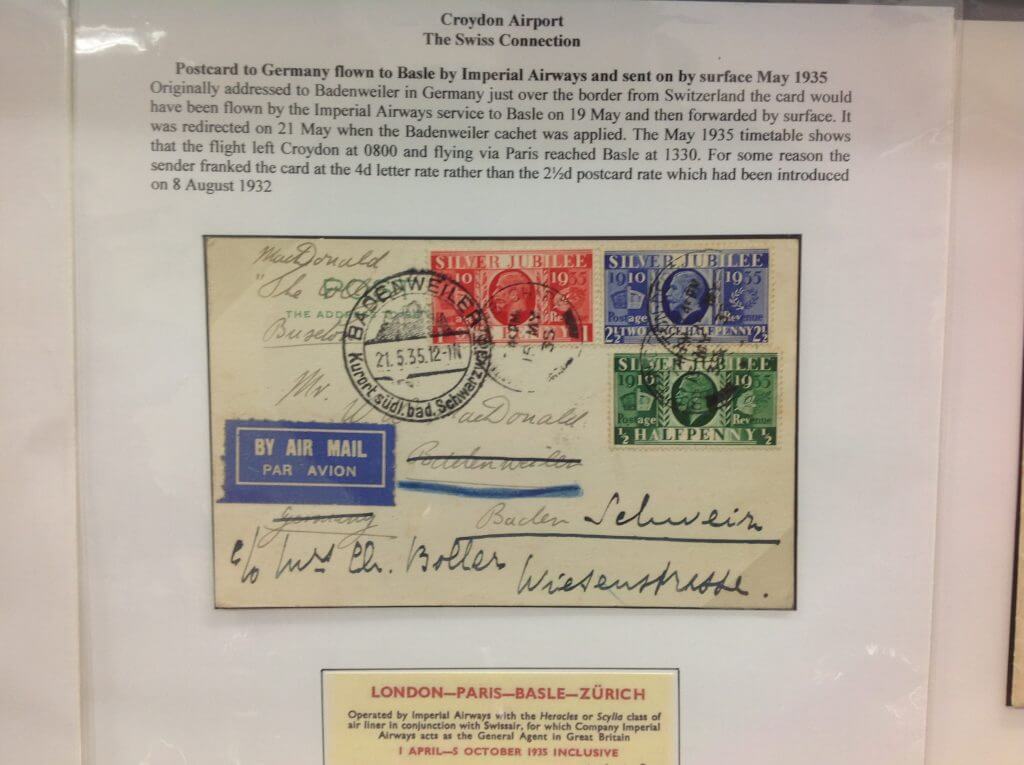 Croydon Airport
The Swiss Connection
Postcard to Germany flown to Basle by Imperial Airways and sent on by surface May 1935
Originally addressed to Badenweiler in Germany just over the border from Switzerland the card would
have been flown by the Imperial Airways service to Basle on 19 May and then forwarded by surface. It
was redirected on 21 May when the Badenweiler cachet was applied. The May 1935 timetable shows
that the flight left Croydon at 0800 and flying via Paris reached Basle at 1330. For some reason the
sender franked the card at the 4d letter rate rather than the 2½d postcard rate which had been introduced
on 8 August 1932
MacDonald
"The
THE ADDRESS
SILVER JUBILEE
1910 1935
Postage Revenue
1 1
SILVER JUBILEE
1910 1935
Postage Revenue
2½ TWO PENCE HALFPENNY 2½
SILVER JUBILEE
1910 1935
Postage Revenue
½ HALFPENNY ½
BADENWEILER
21.5.35.12-1N
Kurort südl. bad. Schwarzwald
MY
35
Mr.
MacDonald
Badenweiler
BY AIR MAIL
PAR AVION
Germany
Baden Schweiz
c/o Mrs Ch. Boller
Wiesenstrasse.
LONDON—PARIS—BASLE—ZÜRICH
Operated by Imperial Airways with the Heracles or Scylla class of
air liner in conjunction with Swissair, for which Company Imperial
Airways acts as the General Agent in Great Britain
1 APRIL—5 OCTOBER 1935 INCLUSIVE